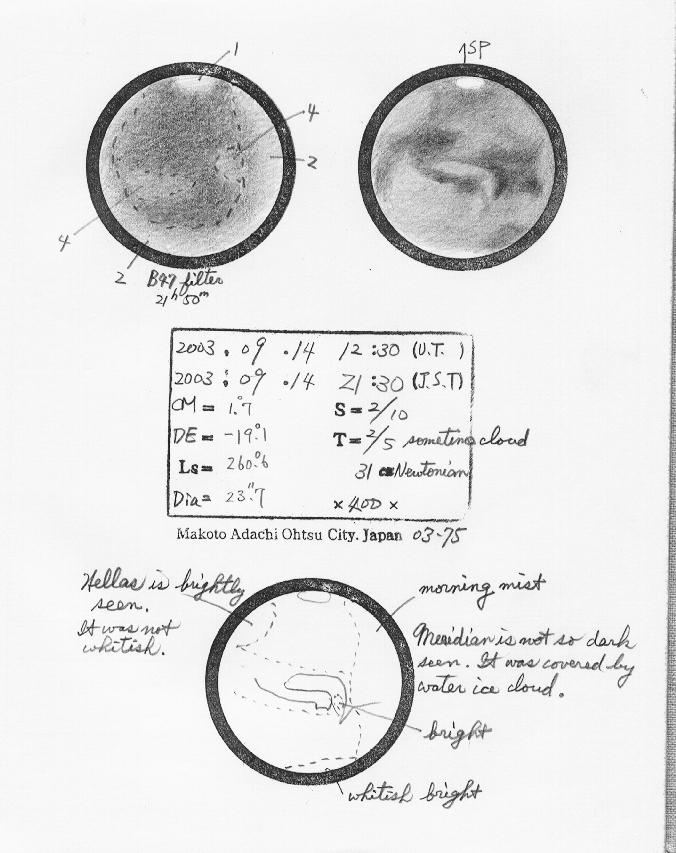 1
↑SP
4
2
4
2
B47 filter
21h 50m
2003 . 09 . 14 12 : 30 (U.T. )
2003 : 09 . 14 21 : 30 (J.S.T)
CM = 1.°7 S = 2/10
DE = -19.°1 T = 2/5 sometime cloud
Ls = 260.°6 31 cm Newtonian
Dia = 23."7 × 400 ×
Makoto Adachi Ohtsu City. Japan 03-75
Hellas is brightly
seen.
It was not
whitish.
morning mist
Meridian is not so dark
seen. It was covered by
water ice cloud.
bright
whitish bright